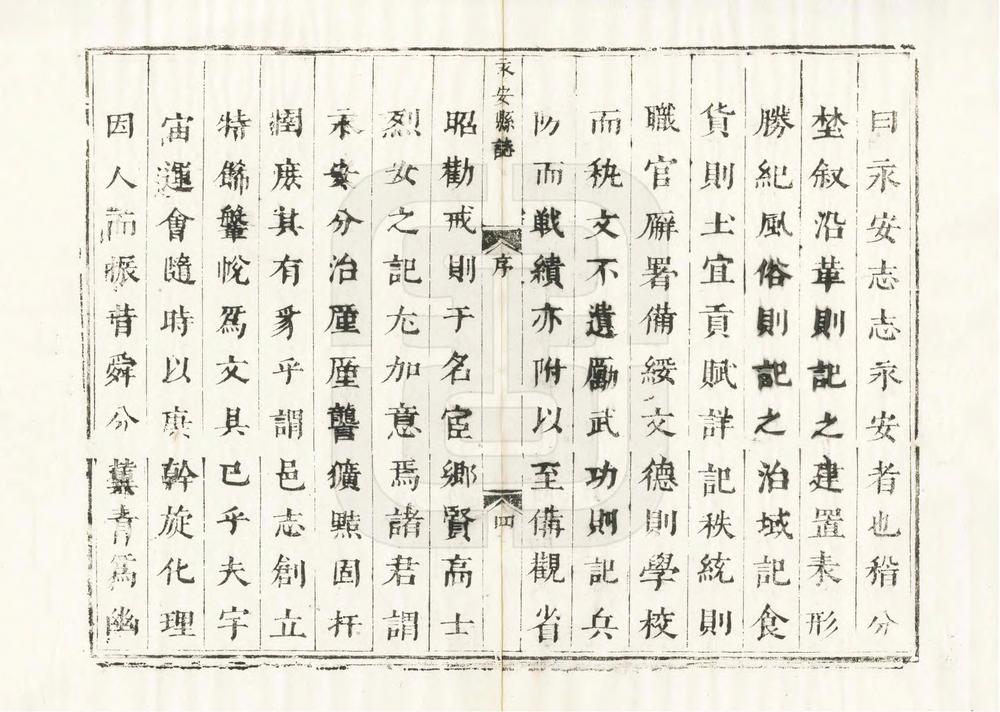 曰永安志志永安者也稽分
埜叙沿革則記之建置表形
勝紀風俗則記之治域記食
貨則土宜貢賦詳記秩統則
職官廨署備綏文德則學校
而秩文不遺勵武功則記兵
防而戰績亦附以至備觀省
永安縣誌
序
四
昭勸戒則于名宦鄉賢高士
烈女之記尤加意焉諸君謂
永安分治厪厪讋獷黠固杆
圉庶其有豸乎謂邑志創立
特餙鞶帨爲文具已乎夫宇
宙運會隨時以興幹旋化理
因人而振昔舜分冀青爲幽